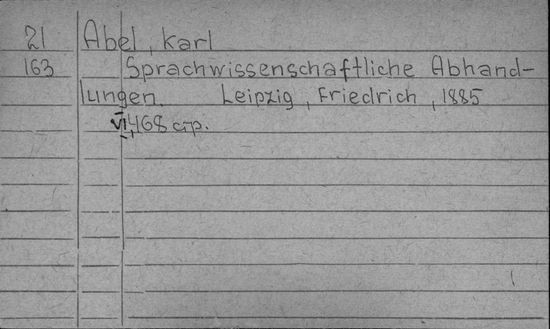 21 Abel, Karl
163 Sprachwissenschaftliche Abhand-
lungen. Leipzig, Friedrich, 1885
VI, 468 стр.